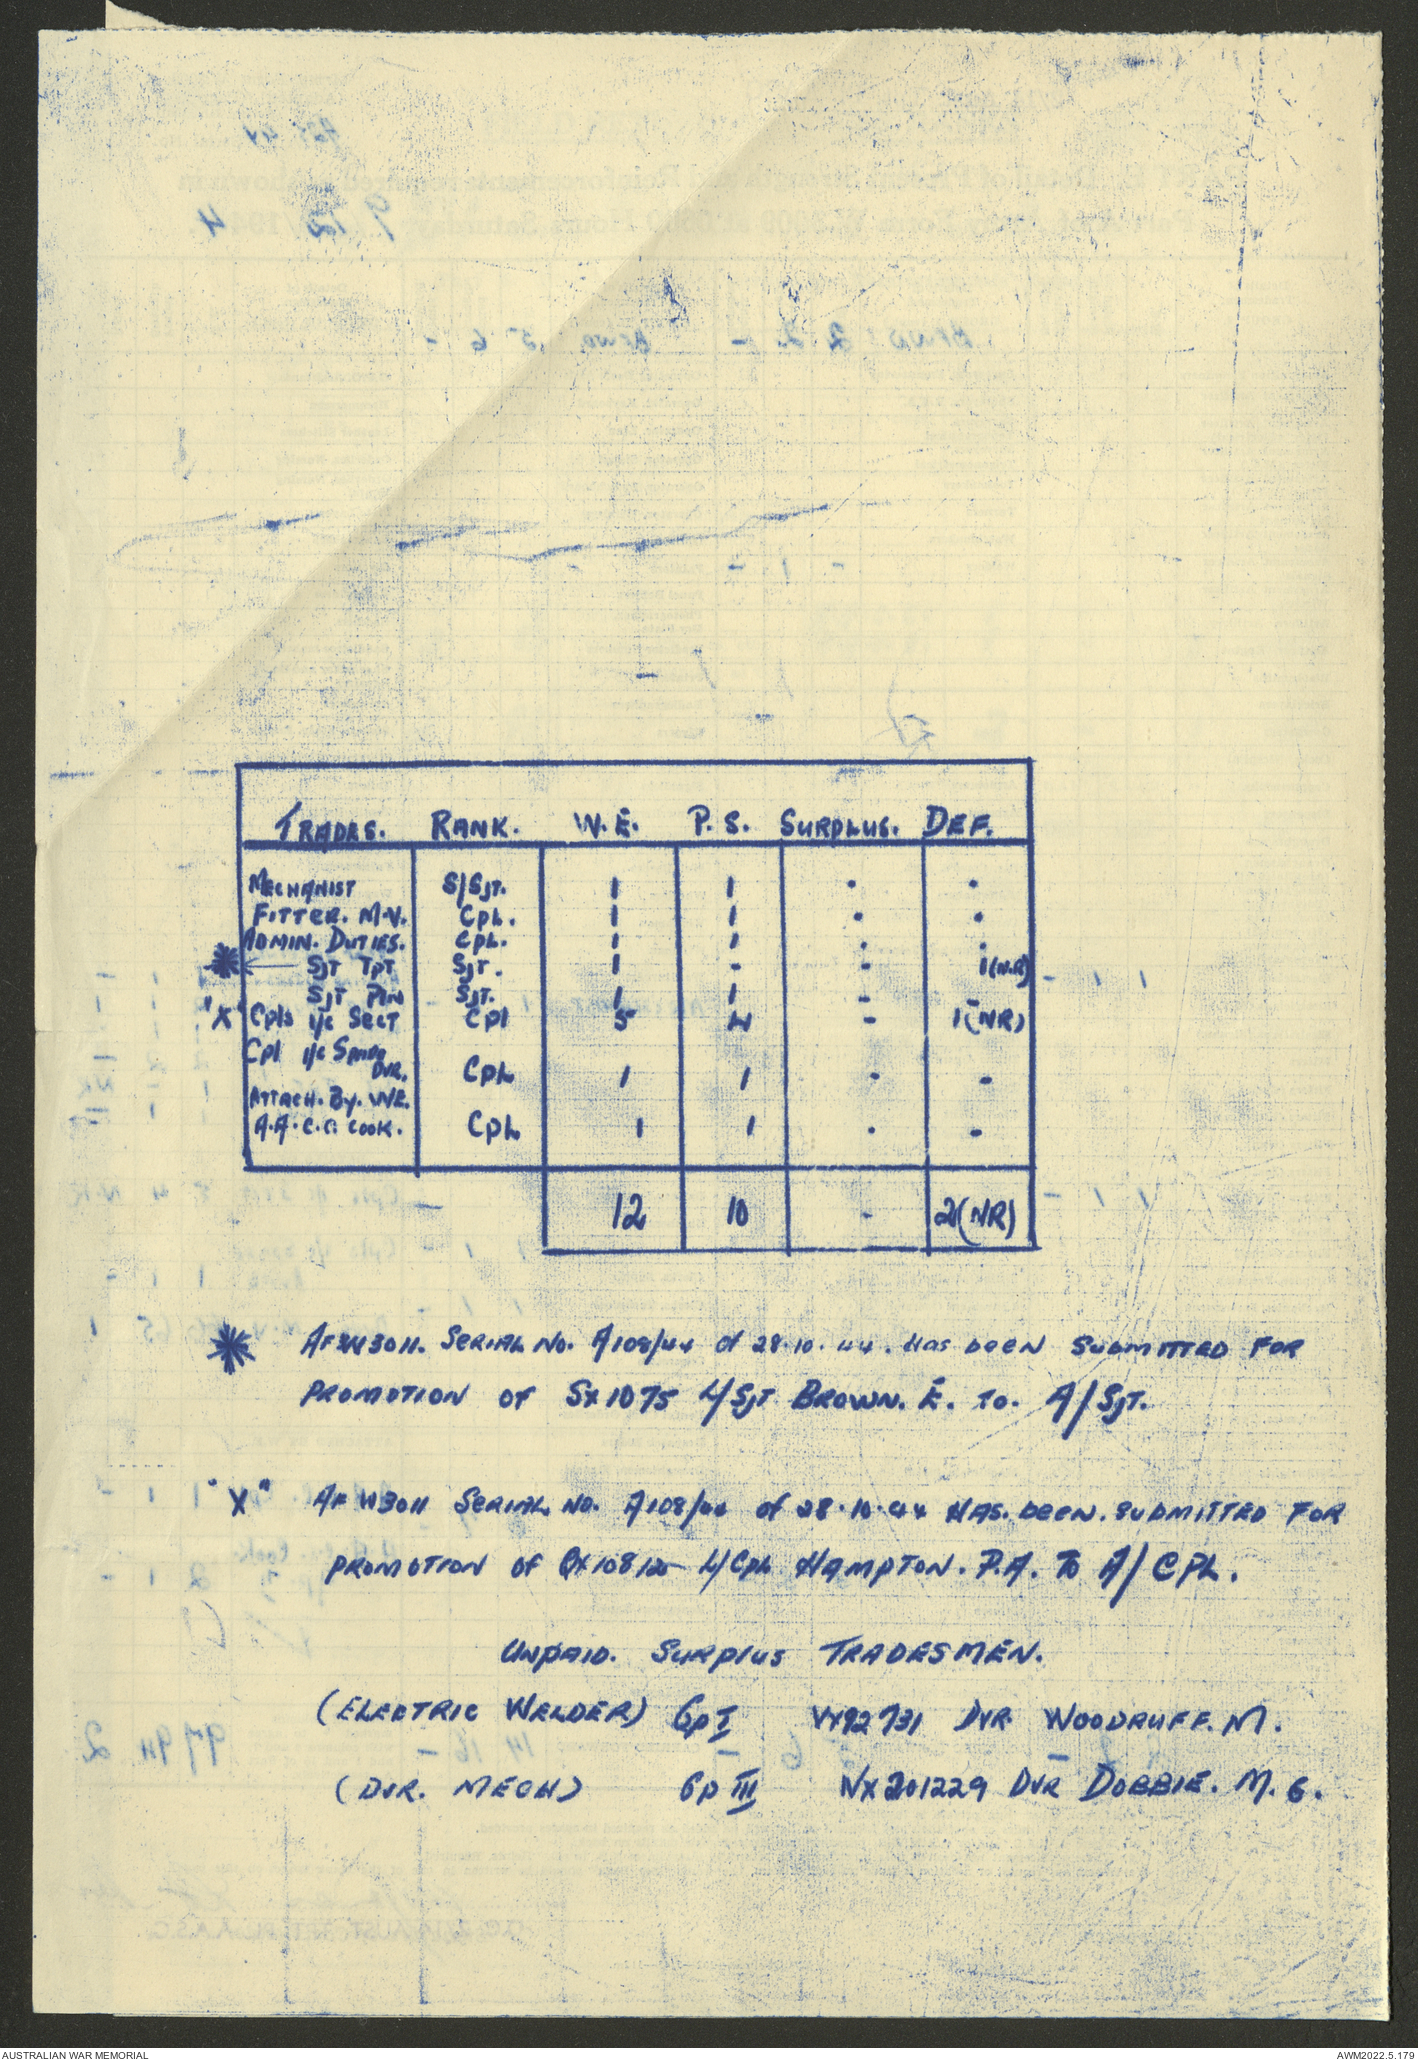 TRADES. RANK. W.E. P.S. SURPLUS. DEF.
MECHANIST S/SJT. 1 1 . .
FITTER. M.V. CPL. 1 1 . .
ADMIN. DUTIES. CPL. 1 1 . .
SJT TPT SJT. 1 - - 1(N.R)
SJT PLN SJT. 1 1 - -
"X" Cpls i/c SECT Cpl 5 4 - 1(NR)
Cpl i/c SPARE
DVR. CPL 1 1 . -
ATTACH. BY. WE.
A.A.C.C. COOK. CPL 1 1 . -
12 10 - 2(NR)
AFW3011. SERIAL NO. A108/44 of 28.10.44. Has been SUBMITTED FOR
PROMOTION OF SX1075 L/SJT BROWN. E. TO. A/SJT.
"X" AFW3011 SERIAL NO. A108/44 of 28.10.44 HAS. been. SUBMITTED FOR
PROMOTION OF L/CPL HAMPTON. P.A. TO A/CPL.
UNPAID. SURPLUS TRADESMEN.
(ELECTRIC WELDER) Gp I DVR WOODRUFF. M.
(DVR. MECH) Gp III NX201229 DVR DOBBIE. M. G.
AUSTRALIAN WAR MEMORIAL AWM2022.5.179